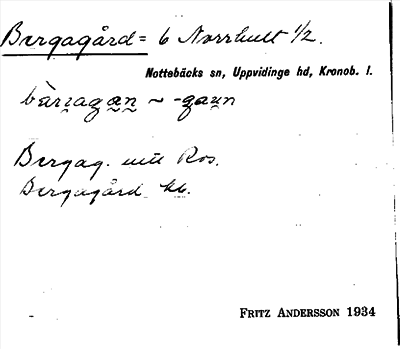 Bergagård = 6 Norrhult 1/2.
Nottebäcks sn, Uppvidinge hd, Kronob. l.
bæ̀rɪagan ~ -gaʊn
Bergag. utt Ros.
Bergagård kb.
FRITZ ANDERSSON 1934